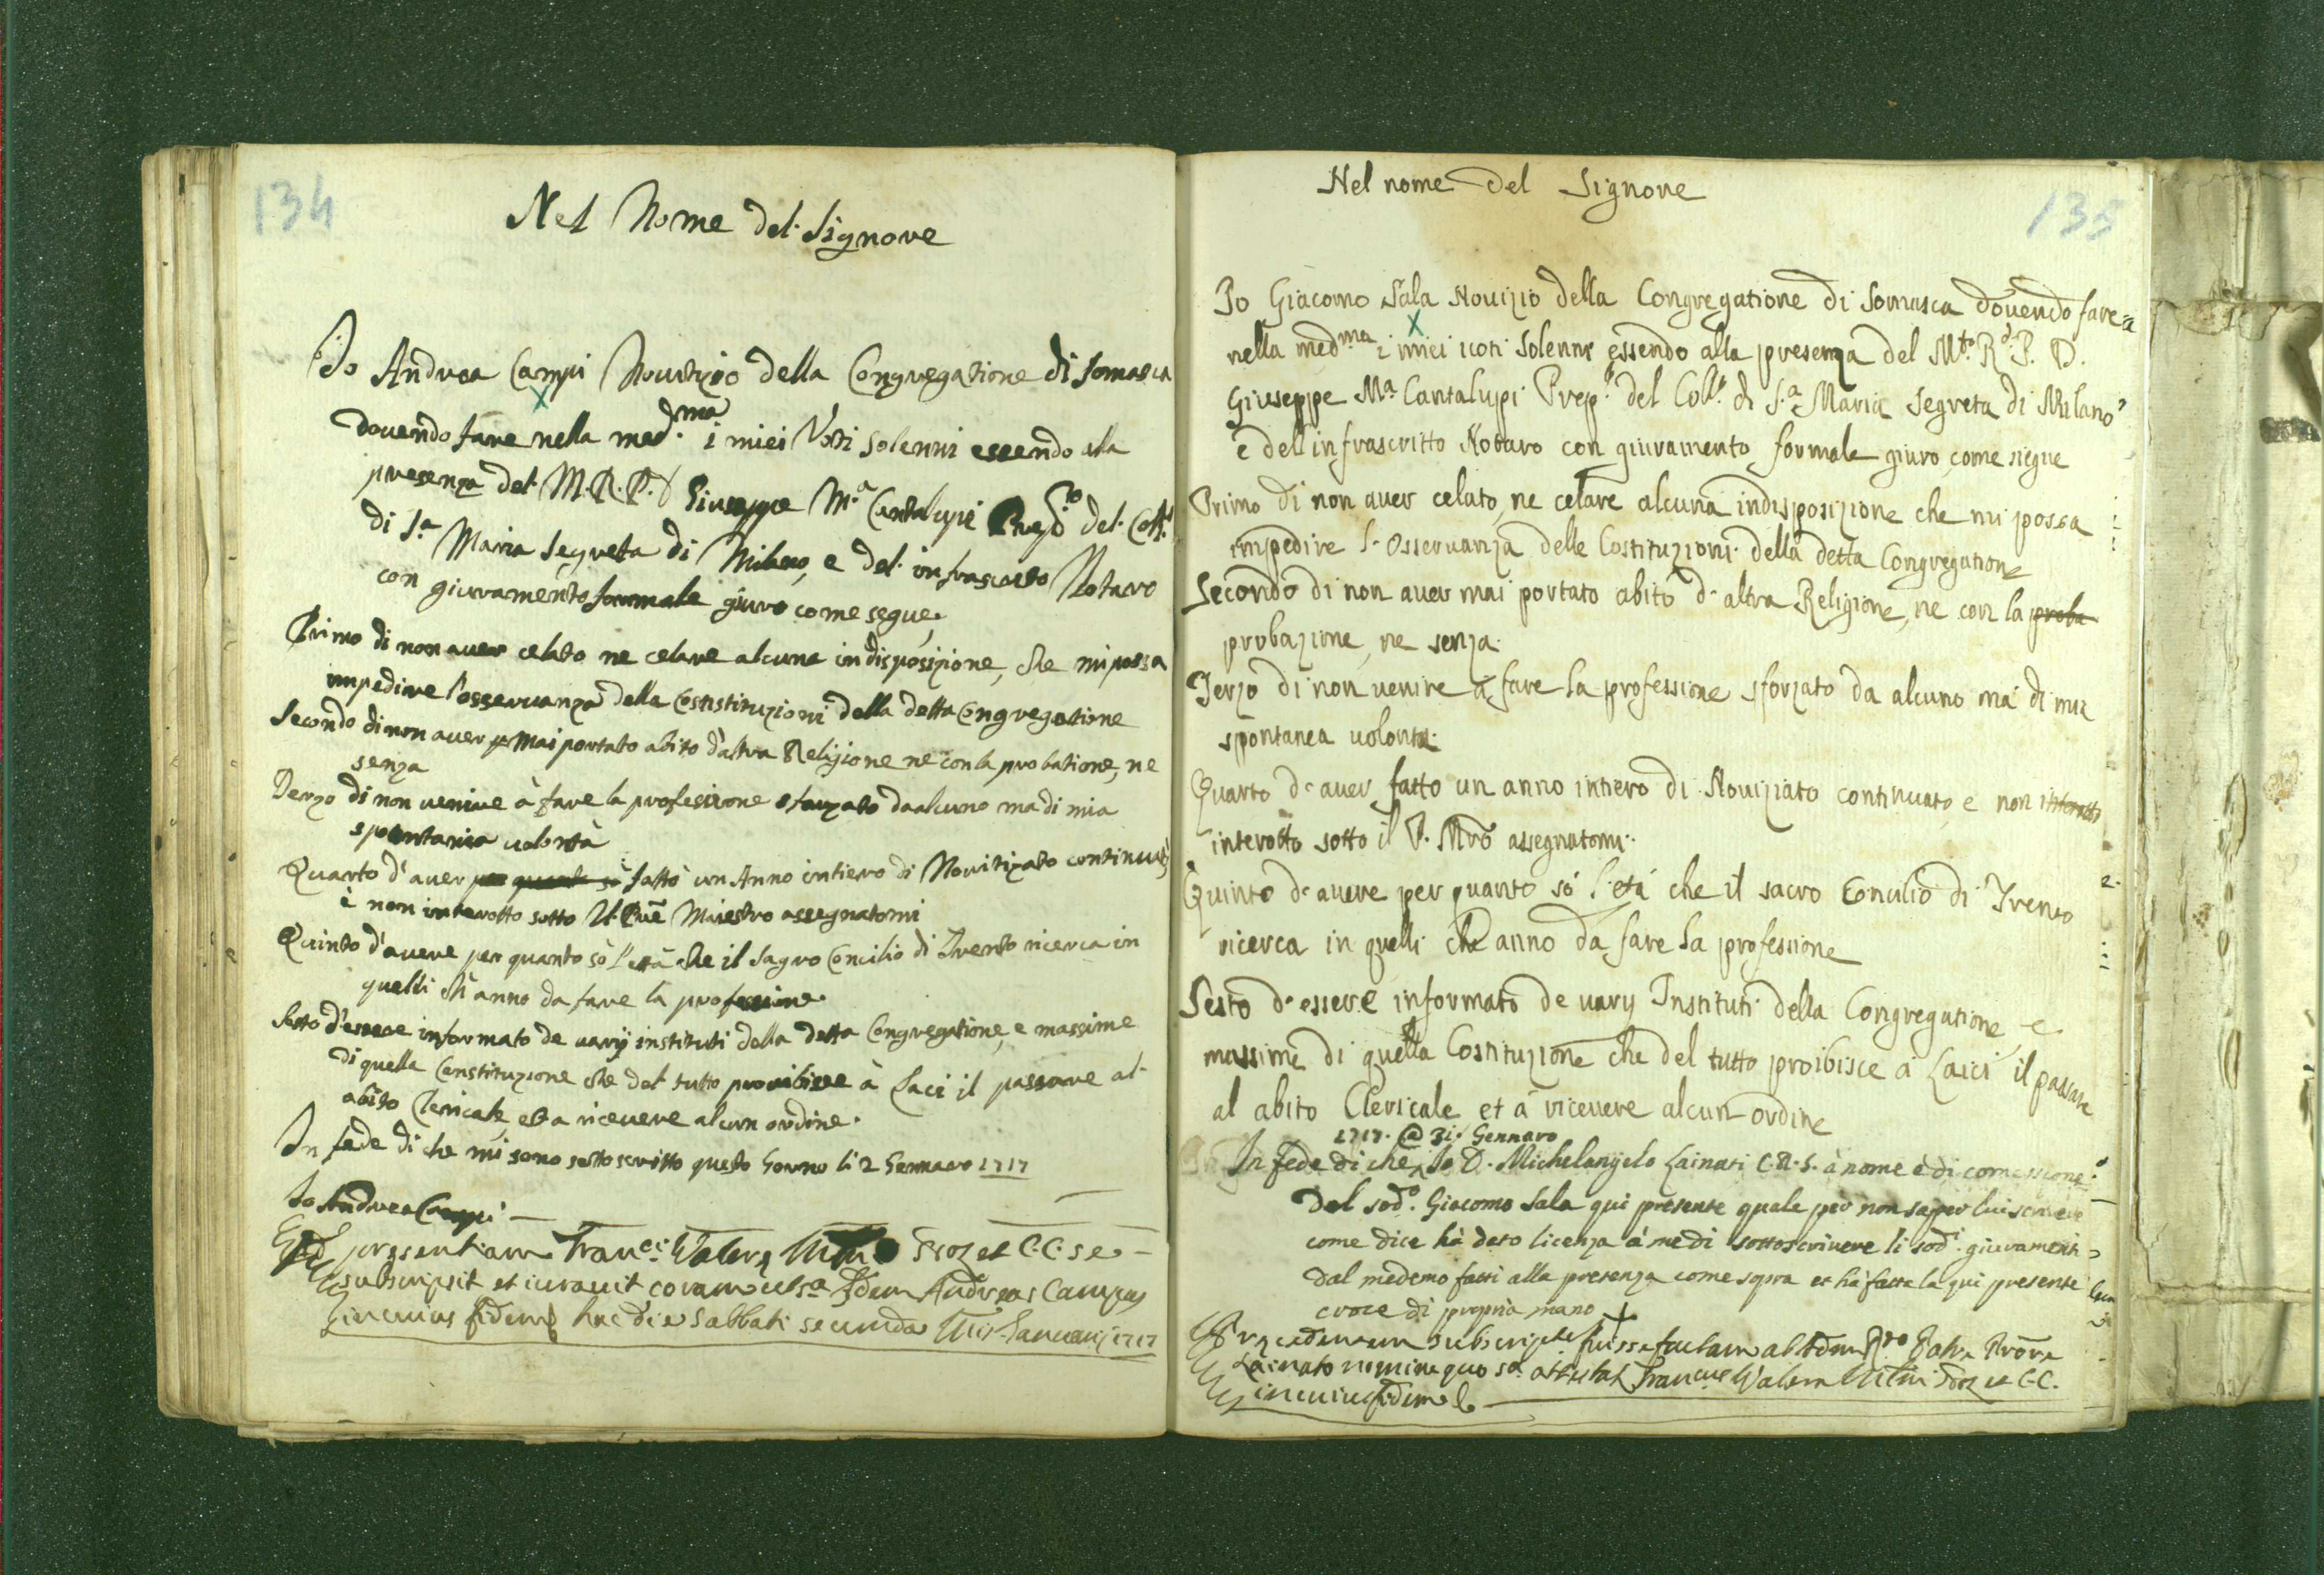 134
Nel Nome del Signore
Io Andrea Campi Nouitizio della Congregatione di Somasca
douendo fare nella med.ma i miei Voti solenni essendo alla
presenza del M.R.P.D Giuseppe M.a Cantalupi Prep.to del Coll.o
di S.a Maria Segreta di Milano, e del infrascritto Notaro
con giuramento formale giuro come segue,
Primo di non auer celato ne celare alcuna indisposizione, che mi possa
impedire l'osseruanza della Costistituzioni della detta Congregatione
Secondo di non auer mai portato abito d'altra Religione ne con la probatione, ne
senza
Terzo di non uenire à fare la professione sforzato da alcuno ma di mia
spontania uolontà
Quarto d'auer per quanto sò fatto un Anno intiero di Nouitizato continuato
è non interotto sotto Il Pre Maestro assegnatomi
Quinto d'auere per quanto sò l'età che il Sagro Concilio di Trento ricerca in
quelli ch'anno da fare la professione.
Sesto d'essere informato de uarij instituti della detta Congregatione, e massime
di quella Constituzione che del tutto proibisce à Laci il passare al
abito Clericale, et a riceuere alcun ordine.
In fede di che mi sono sottoscritto questo Gorno li 2 Gennaro 1717
Io Andrea Campi
presentiam Fran.ci et C.C. se
subscripsit et iurauit coram Idem Andreas Campus
in cuius fidem hac die Sabbati secunda Januarij 1717
135
Nel nome del Signore
Io Giacomo Sala Nouizio della Congregatione di Somasca douendo fare
nella med.ma i miei uoti solenni essendo alla presenza del M.to R.do P. D.
Giuseppe M.a Cantalupi Prep.to del Coll.o di S.a Maria Segreta di Milano
e dell infrascritto Notaro con giuramento formale giuro come siegue
Primo di non auer celato, ne celare alcuna indisposizione che mi possa
impedire l'Osseruanza delle Costituzioni della detta Congregatione
Secondo di non auer mai portato abito d'altra Religione, ne con la proba
probazione, ne senza.
Terzo di non uenire a fare la professione sforzato da alcuno ma di mia
spontanea uolontà.
Quarto d'auer fatto un anno intiero di Nouiziato continuato, e non interotto
interotto sotto il P. Mro assegnatomi.
Quinto d'auere per quanto só l'etá che il sacro Concilio di Trento
ricerca in quelli che anno da fare la professione
Sesto d'essere informato de uarij Instituti della Congregatione, e
massime di quella Costituzione che del tutto proibisce a Laici il passare
al abito Clericale et a riceuere alcun ordine
1717. @ 31. Gennaro
In fede di che, Io D. Michelangelo Lainati C.R.S. à nome è di comessione
del sod.o Giacomo Sala qui presente quale per non saper lui scriuere
come dice hà dato licenza à me di sottoscriuere li sod.i giuramenti
dal medemo fatti alla presenza come sopra et hà fatta la qui presente
croce di propria mano +
Precedentem fuisse factam ab Adm R.do Patre
Lainato nomine quo s.a attestat Fran.cus et C.C.
in cuius fidem